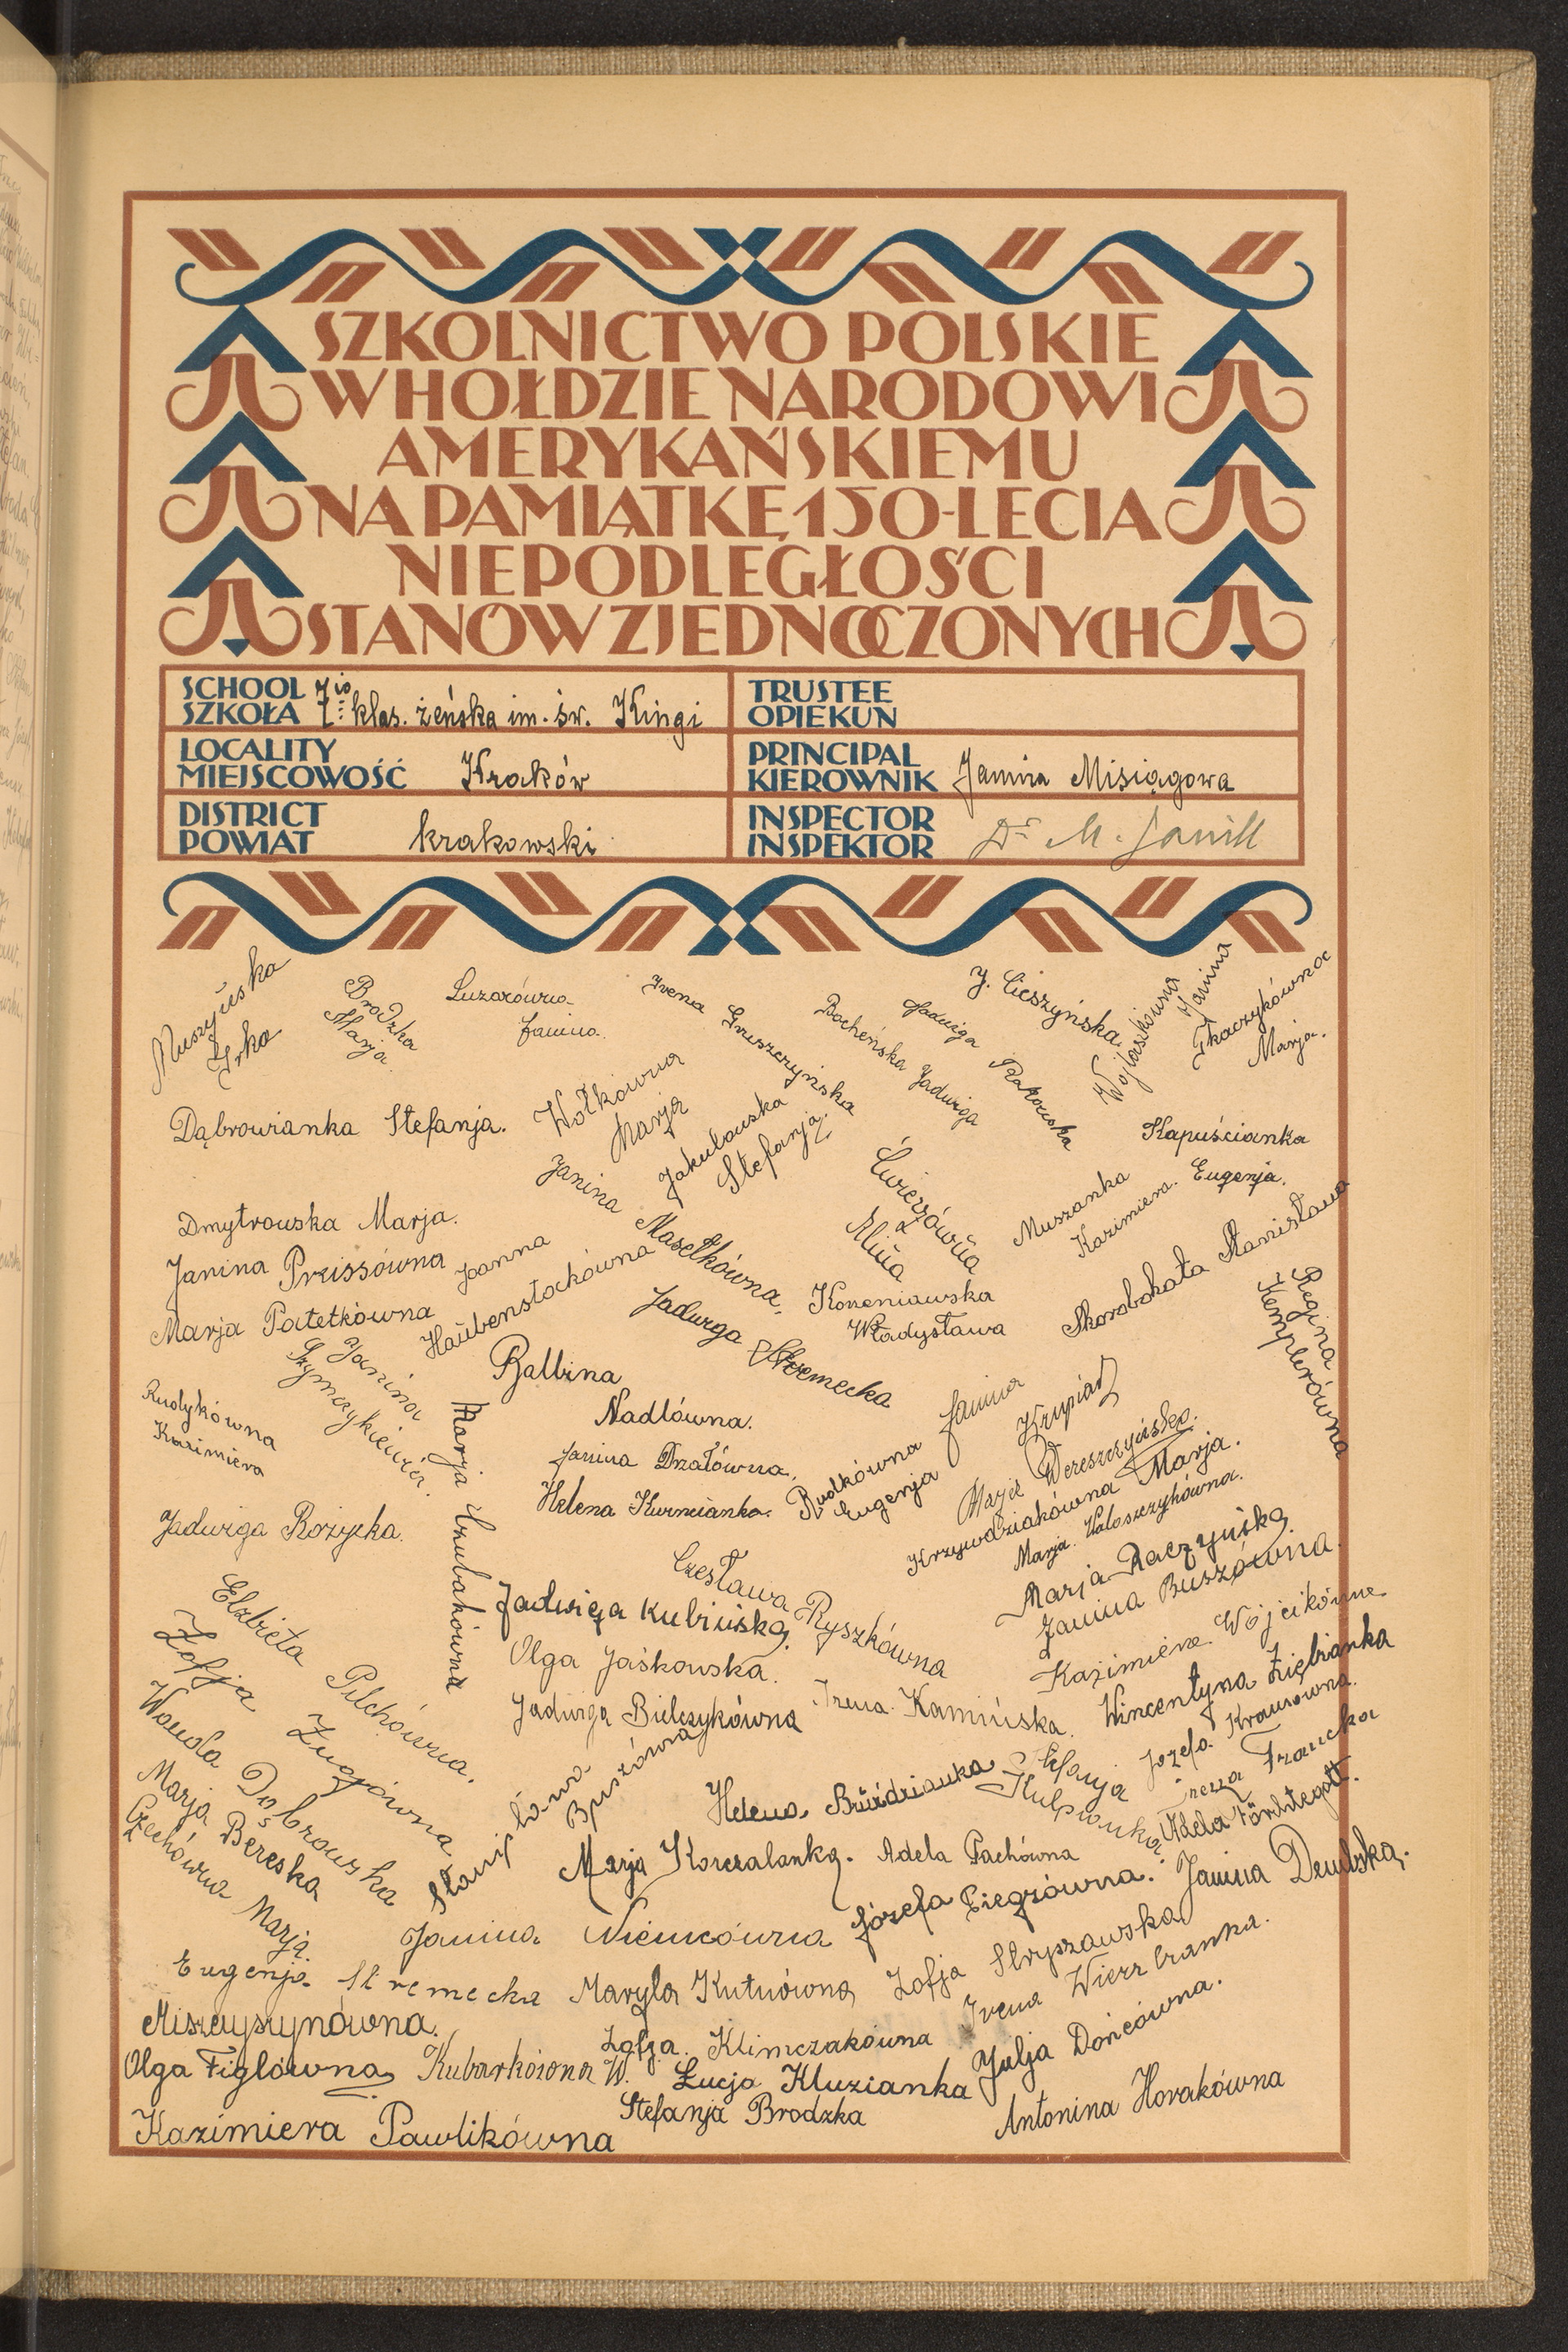 SZKOLNICTWO POLSKIE
W HOŁDZIE NARODOWI
AMERYKAŃSKIEMU
NA PAMIĄTKĘ 150-LECIA
NIEPODLEGŁOŚCI
STANÓW ZJEDNOCZONYCH
SCHOOL
SZKOŁA 7io klas. żeńska im. św. Kingi
TRUSTEE
OPIEKUN
LOCALITY
MIEJSCOWOŚĆ Kraków
PRINCIPAL
KIEROWNIK Janina Misiągowa
DISTRICT
POWIAT krakowski
INSPECTOR
INSPEKTOR Dr M.
Muszyńska
Irka
Brodzka
Marja
Luzarówna
Janina
Irena Gruszczyńska
Bocheńska Jadwiga
Jadwiga Rakowska
J. Cieszyńska
Wojtaszkówna Janina
Tkaczykówna
Marja.
Dąbrowianka Stefanja.
Wołkówna
Marja
Jakubowska
Stefanja.
Kapuścianka
Eugenja.
Świerzówna
Alina
Muszanka
Kazimiera.
Dmytrowska Marja.
Janina Masełkówna.
Janina Preissówna
Joanna
Haubenstockówna
Skorobohata Stanisława
Marja Patetkówna
Jadwiga Stremecka
Korzeniawska
Władysława
Regina
Kemplerówna
Janina
Szymczykiewicz.
Balbina
Nadlówna.
Rudykówna
Kazimiera
Marja Czubakówna
Janina Drzałówna.
Janina Krupiarz
Helena Kurncianka.
Rudkówna
Eugenja
Marja Wereszczyńska.
Krzywdziakówna Marja.
Marja Wołoszczykówna.
Jadwiga Rożycka.
Marja Raczyńska
Janina Buszówna.
Czesława Ryszkówna
Jadwiga Kubińska.
Elżbieta Pilchówna.
Olga Jaśkowska.
Kazimiera Wójcikówna
Zofja Zugówna
Jadwiga Bielczykówna
Irena Kamińska.
Wincentyna Ziębianka
Wanda Dąbrowska
Józefa Krausówna.
Stanisława
Helena Bruździanka
Stefanja
Kulpianka.
Irena Francka
Marja Bereska
Adela Fürchtegott.
Czechówna Marja.
Marja Korczalanka.
Adela Pachówna
Janina Niemcówna
Józefa Ciegzówna.
Janina Dendska.
Eugenja Stremecka
Maryla Kutnówna
Zofja Stryszawska
Irena Wierzbranka.
Miszczyszynówna.
Zofja Klimczakówna
Julja Dońcówna.
Olga Figlówna
Kubarkówna W.
Łucja Kluzianka
Stefanja Brodzka
Antonina Horakówna
Kazimiera Pawlikówna